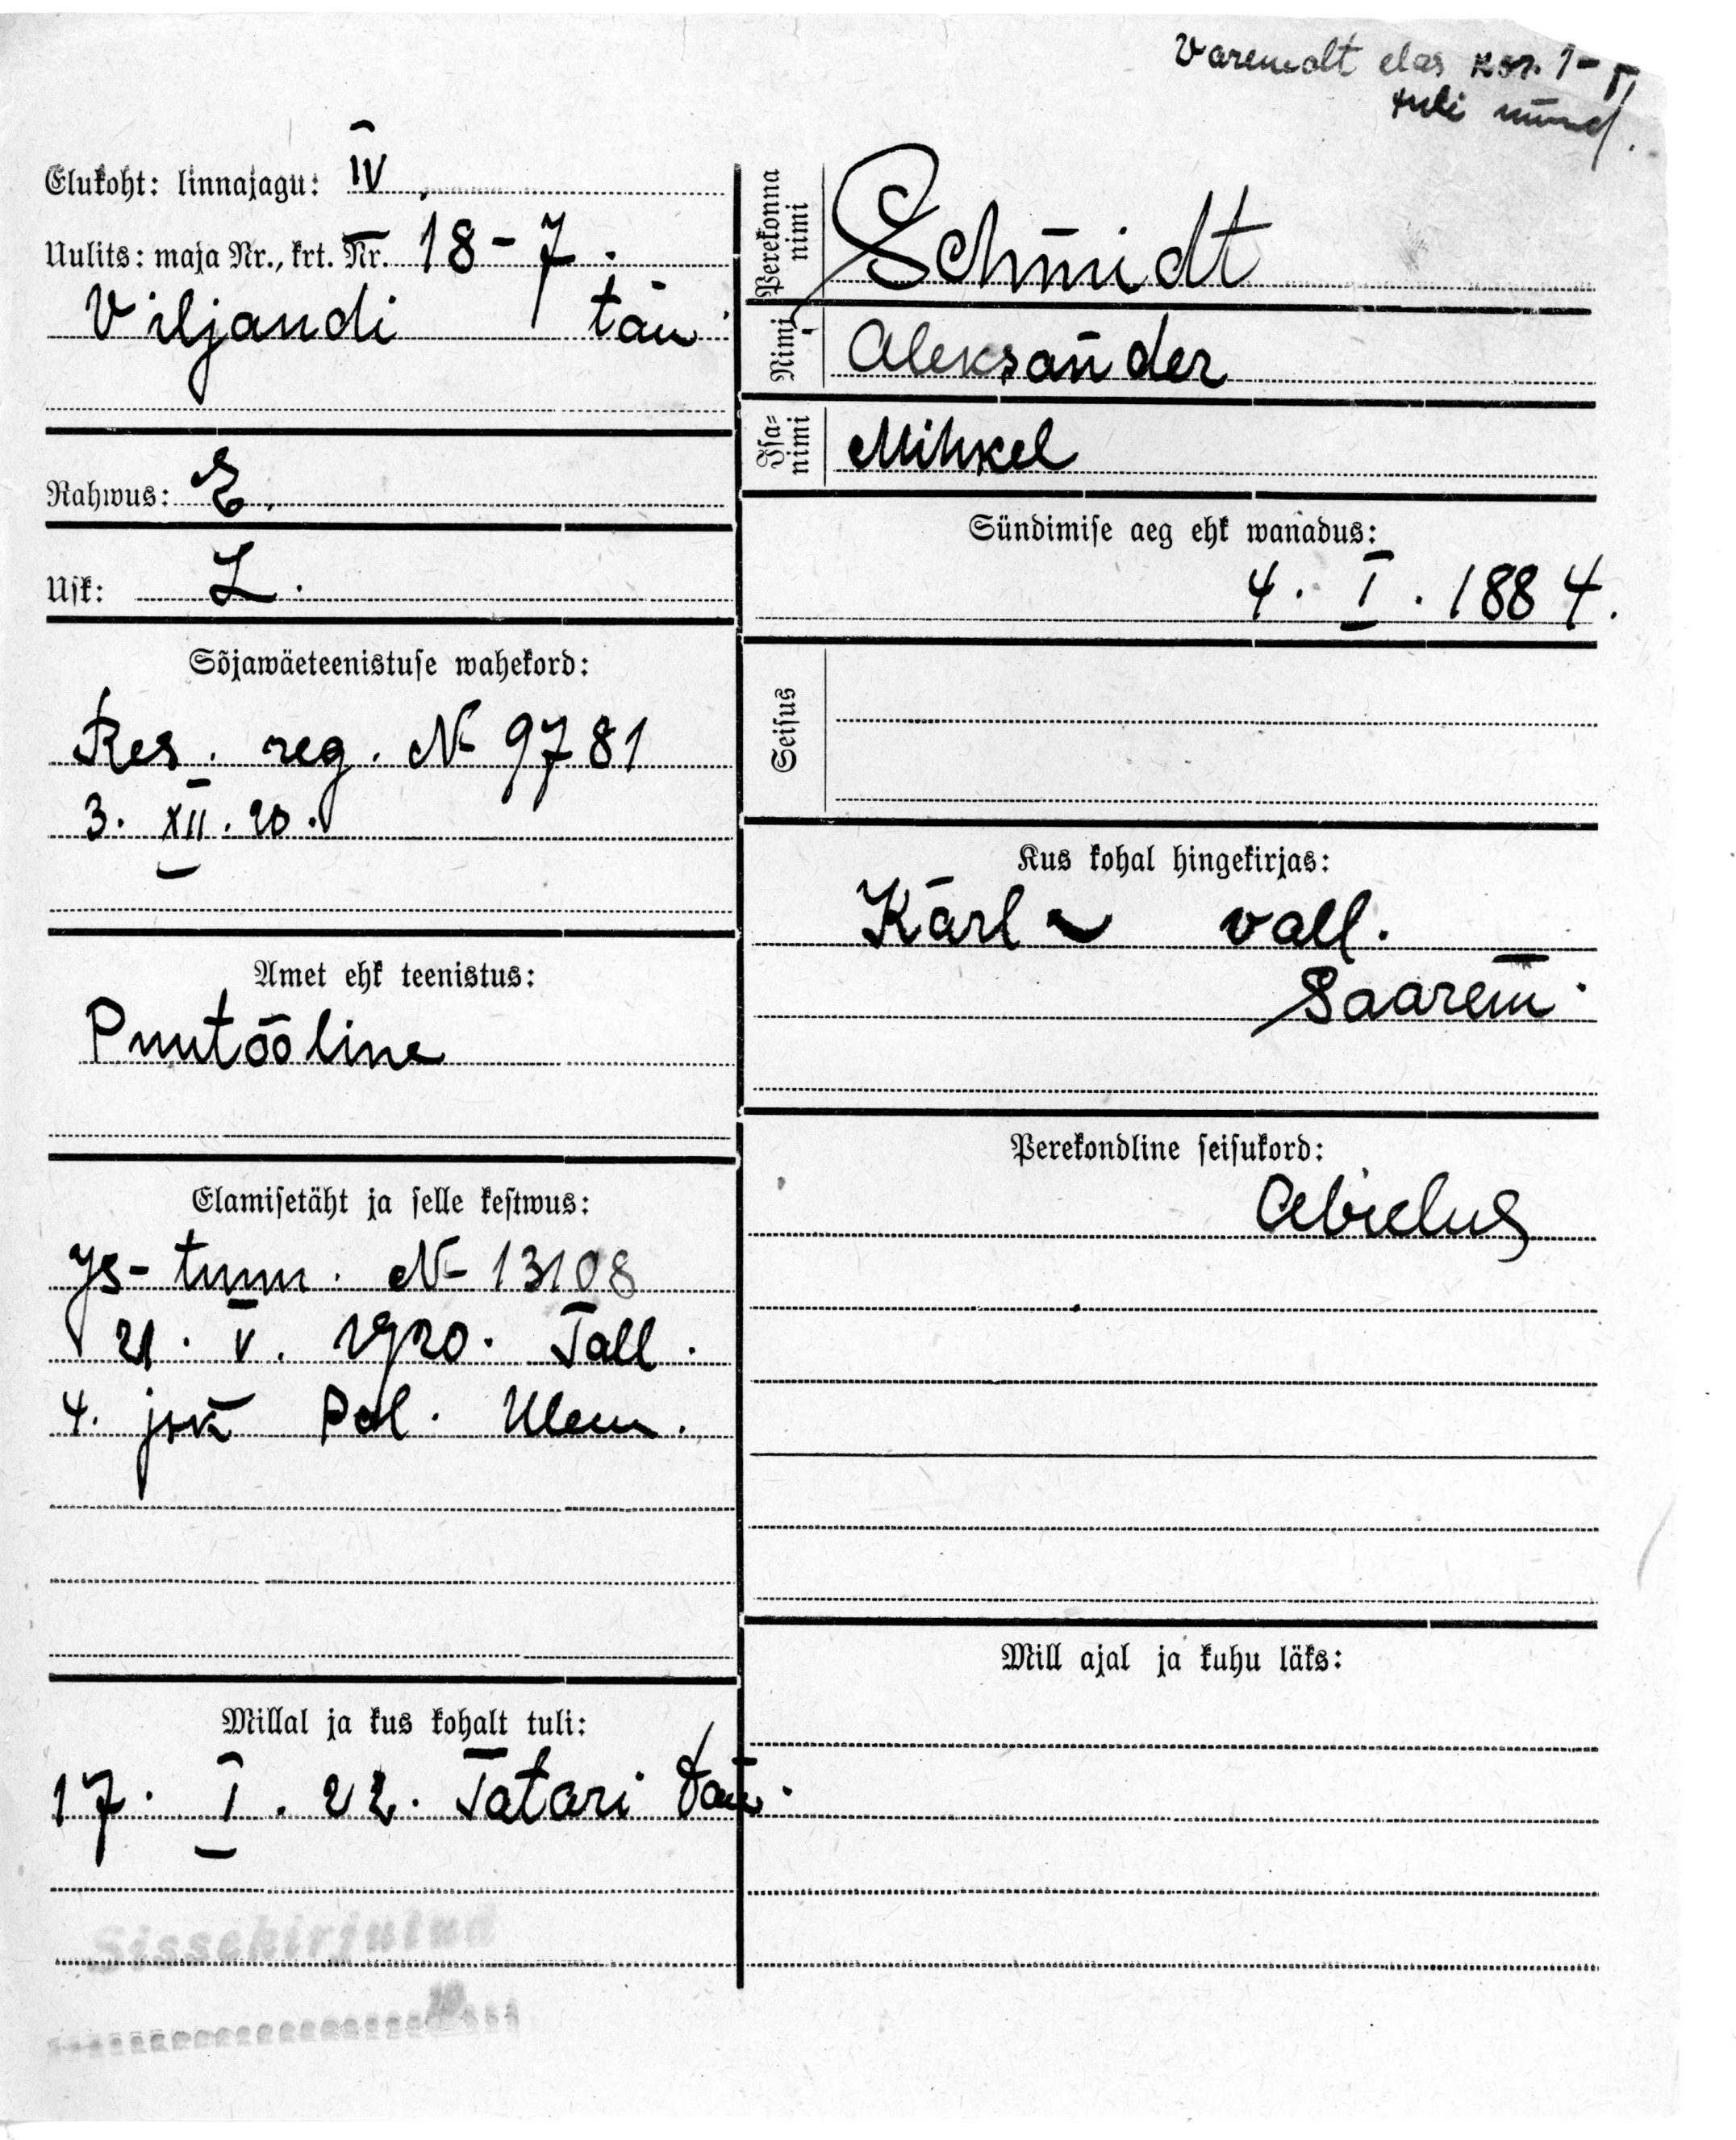 Varemalt elas kor. 1-
tuli
Elukoht: linnajagu: IV
Uulits: maja Nr., krt. Nr. 18-7.
Viljandi tän.
Rahwus: E.
Usk: L.
Sõjawäeteenistuse wahekord:
Res. reg. № 9781
3. XII. 20.
Amet ehk teenistus:
Puutööline
Elamisetäht ja selle kestwus:
Is-tunn. № 13108
21. V. 1920. Tall.
4. jsk Pol. Ülem.
Millal ja kus kohalt tuli:
17. I. 22. Tatari tän.
Sissekirjutud
19
Perekonna nimi
Schmidt
Nimi
Aleksander
Isa-
nimi
Mihkel
Sündimise aeg ehk wanadus:
4. I. 1884.
Seisus
Kus kohal hingekirjas:
Kärl~ vall.
Saarem.
Perekondline seisukord:
Abielus
Mill ajal ja kuhu läks: